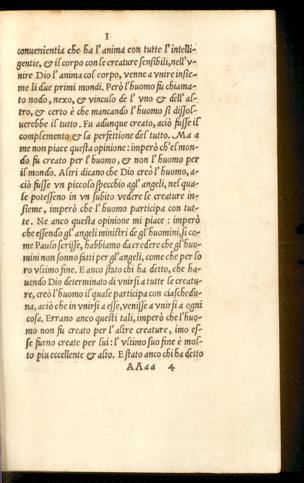 I
conuenientia che ha l'anima con tutte l'intelli-
gentie, & il corpo con le creature sensibili, nell'v-
nire Dio l'anima col corpo, venne a vnire insie-
me li due primi mondi. Però l'huomo fu chiama-
to nodo, nexo, & vinculo de l' vno & dell' al-
tro, & certo è che mancando l'huomo si dissol-
uerebbe il tutto. Fu adunque creato, aciò fusse il
complemento & la perfettione del tutto. Ma a
me non piace questa opinione: imperò ch'el mon-
do fu creato per l'huomo, & non l'huomo per
il mondo. Altri dicano che Dio creò l'huomo, a-
ciò fusse vn piccolo specchio agl'angeli, nel qua-
le potesseno in vn subito vedere le creature in-
sieme, imperò che l'huomo participa con tut-
te. Ne anco questa opinione mi piace : imperò
che essendo gl'angeli ministri de gl'huomini, si co-
me Paulo scrisse, habbiamo da credere che gl'huo-
mini non sonno fatti per gl'angeli, come che per lo
ro vltimo fine. E anco stato chi ha detto, che ha-
uendo Dio determinato di vnirsi a tutte le creatu-
re, creò l'huomo il quale participa con ciaschedu-
na, aciò che in vnirsi a esse, venisse a vnirsi a ogni
cosa. Errano anco questi tali, imperò che l'huo-
mo non fu creato per l'altre creature, imo es-
se furno create per lui: l' vltimo suo fine è mol-
to piu eccellente & alto. E stato anco chi ha detto
AAaa 4